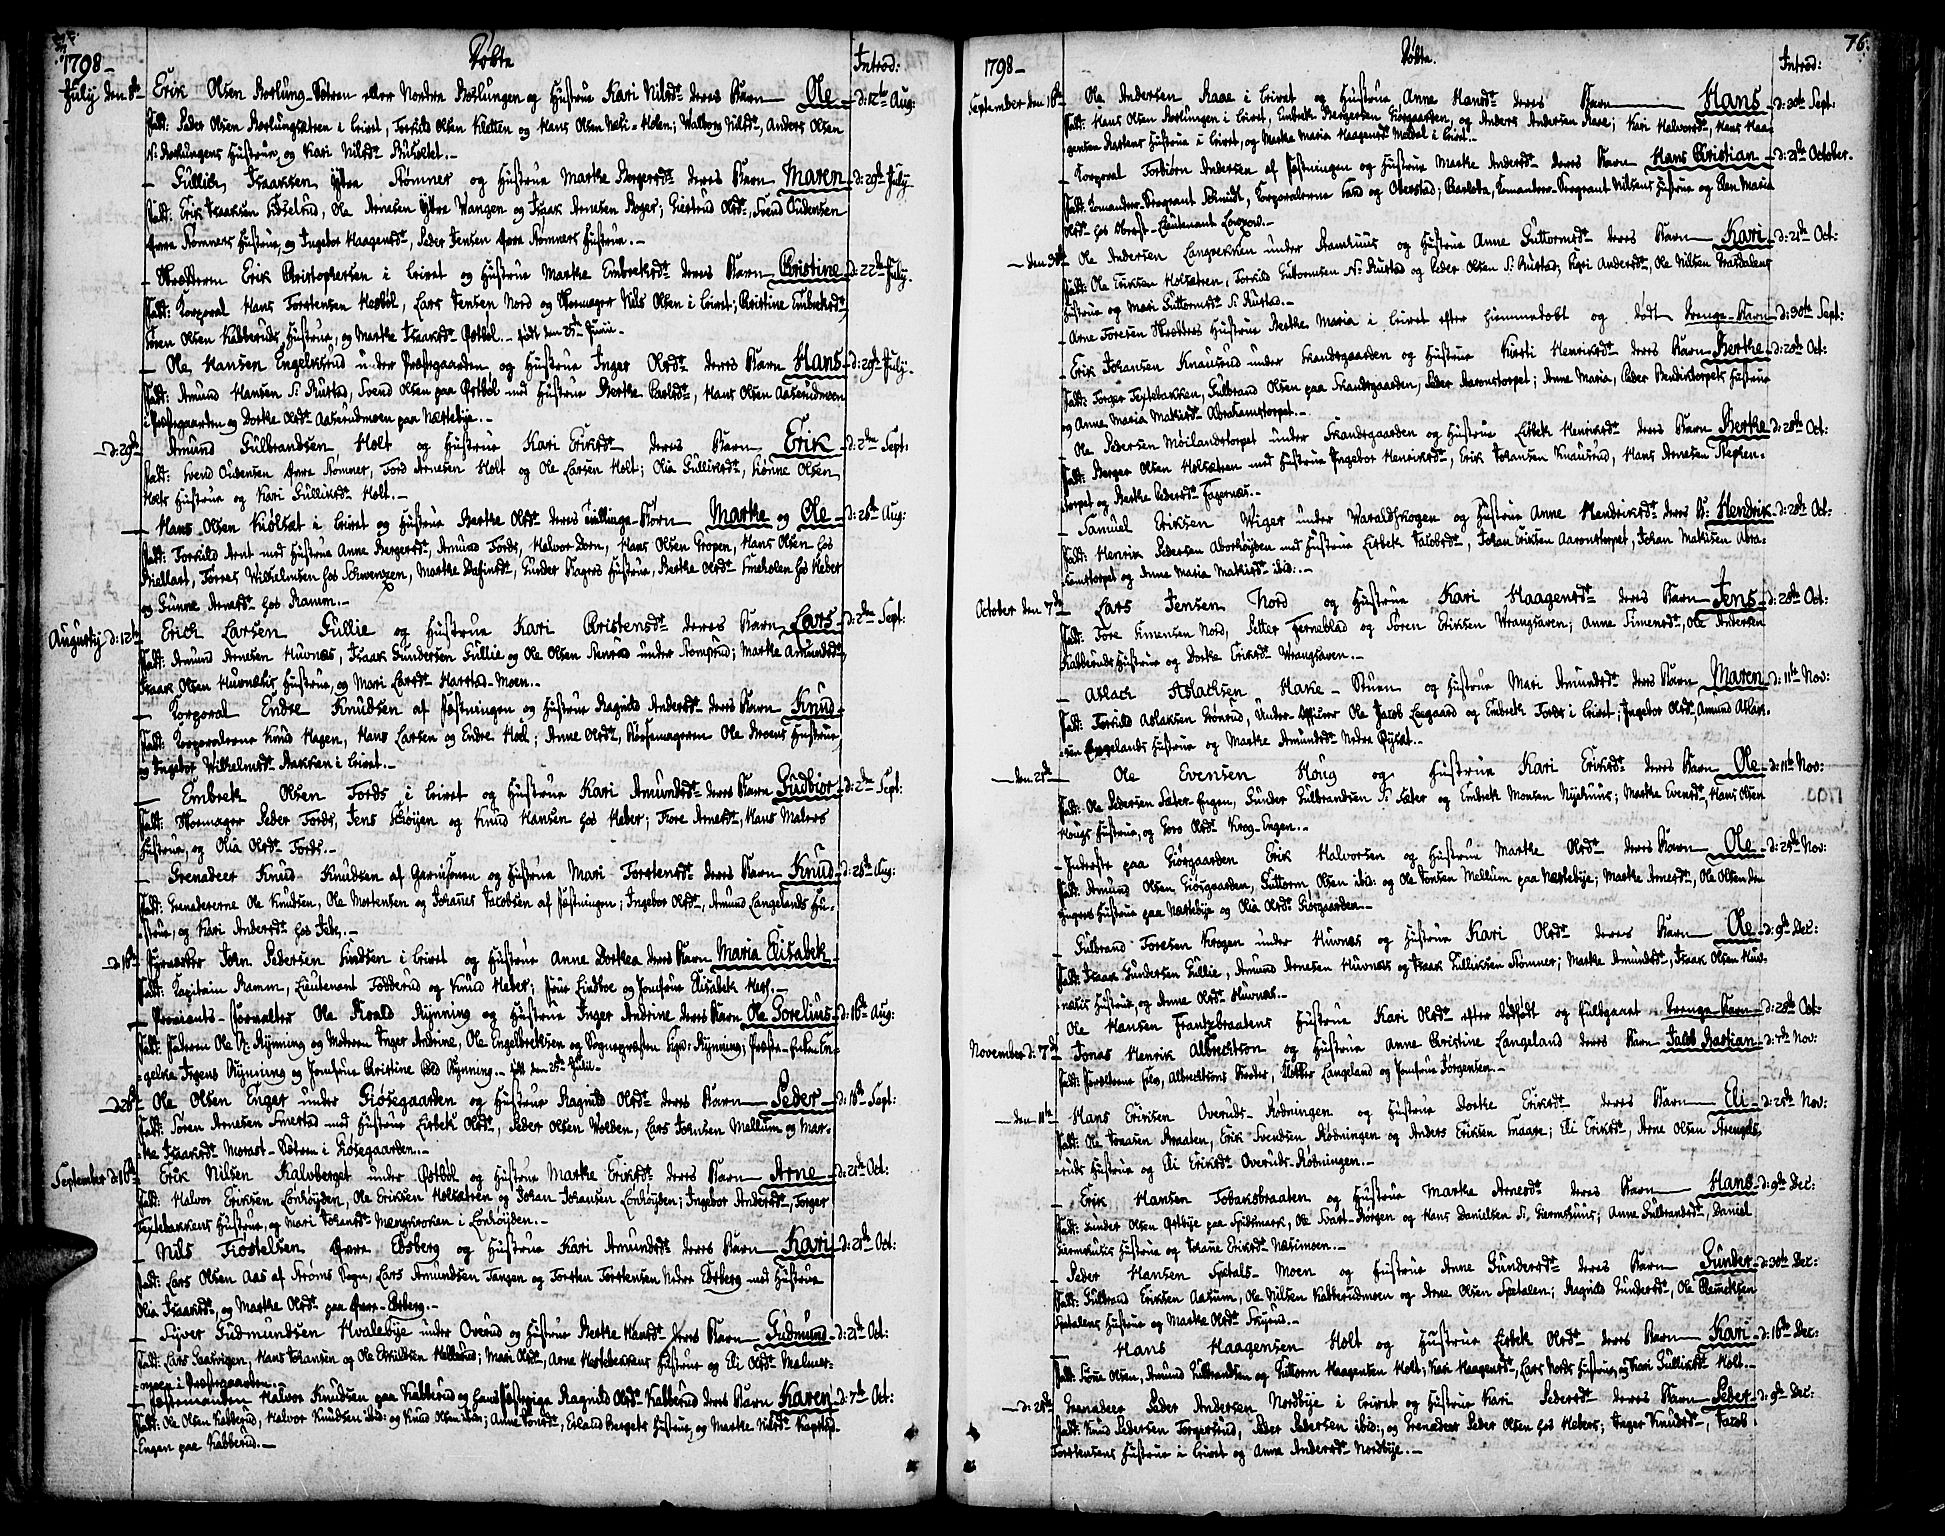 1798_
Døbte
Introd:
July den 8de Erik Olsen Rorlung-Sætren eller Nordre Rorlungen og Hustrue Kari Nilsdr deres Barn Ole d: 12te Aug:
Fadd: Peder Olsen Rorlungsætren i Leiret, Torkild Olsen Kletten og Hans Olsen Holen; Walborg Nilsdr, Anders Olsen
N: Rorlungens Hustrue, og Kari Nilsdr
Gullik Isaksen Ydre Stømner og Hustrue Marthe Borgersdr deres Barn Maren d: 29de July
Fadd: Erik Isaksen, Ole Arnesen Ydre Wangen og Isaak Arnesen Roger; Giertrud Olsdr, Svend Oudensen
Øvre Stømners Hustrue, og Ingebor Haagensdr, Peder Jensen Øvre Stømners Hustrue.
Skredderen Erik Christophersen i Leiret og Hustrue Marthe Embretsdr deres Barn Christine d: 22de July
Fadd: Korporal Hans Torstensen Hesbøl, Lars Jensen Nord og Skomager Nils Olsen i Leiret; Christine Embretsdr,
Søren Olsen Kabberuds Hustrue, og Marthe Isaksdr Østbøl. født den 25de Junii
Ole Hansen Engelkerud under Præstgaarden og Hustrue Inger Olsdr deres Barn Hans d: 29de July
Fadd: Amund Hansen S: Rustad, Svend Olsen paa Østbøl med Hustrue Berthe Carlsdr, Hans Olsen Aaserudmoen
i Præstgaarden og Dorthe Olsdr Aaserudmoen paa Næstebye.
d: 29de Amund Gulbrandsen Holt og Hustrue Kari Eriksdr deres Barn Erik d: 2den Sept:
Fadd: Svend Oudensen Øvre Stømner, Tord Arnesen Holt og Ole Larsen Holt; Olia Gulliksdr, Olsen
Holts Hustrue og Kari Gulliksdr Holt.
Hans Olsen Kiølset i Leiret og Hustrue Berthe Olsdr deres Tvillinge-Børn Marthe og Ole d: 26de Aug:
Fadd: Torkild Arnt med Hustrue Anne Bergersdr, Amund Fords, Halvor Dorn, Hans Olsen Gropen, Hans Olsen hos
Wilhelmsen hos Schwenzen, Marthe, Gunder Hustrue, Berthe Olsdr hos Heber
og Gunne Arnesdr hos Ramm.
Augusty d: 12te Erich Larsen Gullie og Hustrue Kari Christensdr deres Barn Lars d: 2den Sept:
Fadd: Amund Arnesen Huvnæs, Isaak Gundersen Gullie og Ole Olsen under; Marthe Amundsdr,
Isaak Olsen Huvnæses Hustrue, og Mari Larsdr Harstad-Moen.
Korporal Endre Knudsen af Fæstningen og Hustrue Ragnild Andersdr deres Barn Knud
Fadd: Korporalerne Knud Hagen, Hans Larsen og Endre Hoel; Anne Olsdr, Bøssemageren Ole Moens Hustrue,
og Ingebor Wilhelmsdr Bakken i Leiret.
Embret Olsen Fords i Leiret og Hustrue Kari Amundsdr deres Barn Gudbiør d: 2den Sept:
Fadd: Skomager Peder Fords, Jens Schøyen og Knud Hansen hos Heber; Tore Arnesdr, Hans Malers
Hustrue, og Olia Olsdr Fords.
Grenadeer Knud Knudsen af Garnisonen og Hustrue Mari Torstensdr deres Barn Knud d: 26de Aug:
Fadd: Grenadererne Ole Knudsen, Ole Mortensen og Johannes Jacobsen af Fæstningen; Ingebor Olsdr, Amund Langelands Hu-
strue, og Kari Andersdr hos
d: 16de John Pedersen Lindsen i Leiret og Hustrue Anne Dorthea deres Barn Maria Elisabeth
Fadd: Kapitain Ramm, Lieutenant Fodderud og Knud Heber; Frue Lindboe og Jomfrue Elisabeth.
Proviants-Forvalter Ole Roald Rynning og Hustrue Inger Andrine deres Barn Ole Gorelius d: 16de Aug:
Fadd: Faderen Ole R: Rynning og Moderen Inger Andrine, Ole Engelbrektsen og Sognepræsten Rynning; Præste-Enken En-
gelke Rynning og Jomfrue Christine Rynning. født den 25de July
d: 26de Ole Olsen Enger under Giøsegaarden og Hustrue Ragnild Olsdr deres Barn Peder d: 16de Sept:
Fadd: Søren Arnesen Smestad med Hustrue Lisbet Olsdr, Peder Olsen Wolden, Lars Johnsen Mellum og Mar-
the Isaksdr Morast-Sætren i Giøsegaarden.
September d: 16de Erik Nilsen Kalvberget under Østbøl og Hustrue Marthe Eriksdr deres Barn Arne d: 21de Oct:
Fadd: Halvor Eriksen Lønhøyden, Ole Eriksen Holsætren og Johan Johansen Lønhøyden; Ingebor Andersdr, Torger
Hustrue, og Mari Johansdr i Lønhøyden.
Nils Tostelsen Øvre Edsberg og Hustrue Kari Amundsdr deres Barn Kari d: 21de Oct:
Fadd: Lars Olsen Aas af Strøms Sogn, Lars Amundsen Tangen og Torsten Torstensen Nedre Edsberg med Hustrue
Olia Isaksdr, og Marthe Olsdr paa Øvre-Edsberg.
Syver Gudmundsen Hvalebye under Overud og Hustrue Berthe deres Barn Gudmund d: 21de Oct:
Fadd: Lars, Hans Johansen og Ole; Mari Olsdr, Arne Hustrue og Eli Olsdr Malmer-
moen i Præstgaarden.
Halvor Knudsen paa Kabberud og Ragnild Olsdr Kabberud deres Barn Karen d: 7de Oct:
Fadd: Ole Olsen Kabberud, Halvor Knudsen ibid: og Knud Olsen ibid:; Anne, Erland Bergets Hustrue, og Marthe Nilsdr
Engen paa Kabberud.
76.
1798_
Døbte.
Introd:
September den 16de Ole Andersen Raae i Leiret og Hustrue Anne Hansdr deres Barn Hans d: 30te Sept:
Fadd: Hans Olsen Rorlungen i Leiret, Embret Bergersen Giørgaarden, og Anders Andersen Raae; Kari Halvorsdr, Hans Haa-
gensen Hustrue i Leiret, og Marthe Maria Haagensdr i Leiret.
Korporal Torbiørn Andersen af Fæstningen og Hustrue Marthe Andersdr deres Barn Hans Christian d: 21de October.
Fadd: Komandeer-Sergeant Schmidt, Korporalerne Sand og Oberstad;, Komandeer-Sergeant Nilsens Hustrue og Elen Maria
Olsdr hos Obrist-Lieutenant
den 30te Ole Andersen Langrekken under og Hustrue Anne Guttormsdr deres Barn Kari d: 21de Oct:
Fadd: Ole Eriksen Holsætren, Torkild Guttormsen N: Rustad og Peder Olsen S: Rustad; Andersdr, Ole Nilsen Grasdalens
Hustrue og Mari Guttormsdr S: Rustad.
Arne Toresen Skredders Hustrue Berthe Maria i Leiret efter hiemmedøbt og dødt Drenge-Barn d: 30te Sept:
Erik Johansen Knausrud under Skandsgaarden og Hustrue Kirsti Henriksdr deres Barn Berthe d: 28de Oct:
Fadd: Torger, Gulbrand Olsen paa Skandsgaarden, Peder Aaronstorpet; Anne Maria, Peder Bendixtorpets Hustrue
og Anne Maria Matisdr Abrahamstorpet.
Ole Pedersen Moilandstorpet under Skandsgaarden og Hustrue Lisbet Henriksdr deres Barn Berthe d: 28de Oct:
Fadd: Berger Olsen Holsætren med Hustrue Ingebor Henriksdr, Erik Johansen Knausrud, Hans Arnesen Stephen-
torpet og Berthe Pedersdr Fagernæs.
Samuel Eriksen Wiger under Waraldskogen og Hustrue Anne Hendriksdr deres B: Hendrik d: 28de Oct:
Fadd: Henrik Pedersen Aborhøyden med Hustrue Lisbet Jacobsdr, Johan Eriksen Aaronstorpet, Johan Matisen Abra-
hamstorpet og Anne Maria Matisdr ibid:.
October den 7de Lars Jensen Nord og Hustrue Kari Haagensdr deres Barn Jens d: 28de Oct:
Fadd: Tore Simensen Nord, Petter Ferneblad og Søren Eriksen Wrangsaven; Anne Simensdr, Ole Andersen
Kabberuds Hustrue og Dorthe Eriksdr Wrangsaven.
Aslach Aslachsen Hake-Stuen og Hustrue Mari Amundsdr deres Barn Maren d: 11te Nov:
Fadd: Torkild Aslaksen Grønrud, Under-Officeer Ole Jacob og Embret Fords i Leiret; Ingebor Olsdr, Amund Aslak-
sen Hustrue og Marthe Amundsdr Nedre.
den 21de Ole Evensen Houg og Hustrue Kari Eriksdr deres Barn Ole d: 11te Nov:
Fadd: Ole Pedersen Sæter-Engen, Gunder Gulbrandsen S: Sæter og Embret Monsen Nyehuus; Marthe Evensdr, Hans Olsen
Hougs Hustrue, og Goro Olsdr Krog-Engen.
Inderste paa Giørgaarden Erik Halvorsen og Hustrue Marthe Olsdr deres Barn Ole d: 25de Nov:
Fadd: Amund Olsen Giørgaarden, Guttorm Olsen ibid: og Ole Jonsen Mellum paa Næstebye; Marthe Arnesdr, Ole Olsen En-
gers Hustrue paa Næstebye og Olia Olsdr Giørgaarden.
Gulbrand Toresen Krogen under Huvnæs og Hustrue Kari Olsdr deres Barn Ole d: 9de Dec:
Fadd: Isaak Gundersen Gullie, Amund Arnesen Huvnæs og Isaak Gulliksen Stømner; Marthe Amundsdr, Isaak Olsen Huv-
næses Hustrue, og Anne Olsdr Huvnæs.
Ole Hansen Frantzbraatens Hustrue Kari Olsdr efter dødfødt og fuldgaaet Drenge-Barn d: 28de Oct:
November d: 7de Jonas Henrik Albrechtson og Hustrue Anne Christine Langeland deres Barn Jacob Bastian d: 7de Nov:
Fadd: Forældrene selv, Albrechtsons Broder, Klokker Langeland og Jomfrue Jørgensen.
den 11te Hans Eriksen Overuds-Rødningen og Hustrue Dorthe Eriksdr deres Barn Eli d: 25de Nov:
Fadd: Ole Jonassen Braaten, Erik Svendsen Rødningen og Anders Eriksen Snaare; Eli Eriksdr, Arne Olsen Arengels-
ruds Hustrue og Eli Eriksdr Overuds-Rødningen.
Erik Hansen Tobaksbraaten og Hustrue Marthe Arnesdr deres Barn Hans d: 9de Dec:
Fadd: Gunder Olsen Østbye paa Spidsmark, Ole Svart-Borgen og Hans Danielsen S: Giermshuus; Anne Gulbrandsdr, Daniel
Giermshuses Hustrue og Johanne Eriksdr Næsimoen.
Peder Hansen Spetals-Moen og Hustrue Anne Gundersdr deres Barn Gunder d: 30te Dec:
Fadd: Gulbrand Eriksen Aasum, Ole Nilsen Kabberudmoen og Arne Olsen Spetalen; Ragnild Gundersdr, Ole
Spetalens Hustrue og Marthe Olsdr Skyrud.
Hans Haagensen Holt og Hustrue Lisbet Olsdr deres Barn Kari d: 16de Dec:
Fadd: Olsen, Amund Gulbrandsen og Guttorm Haagensen Holt; Kari Haagensdr, Lars Nords Hustrue, og Kari Gulliksdr Holt.
d: 25de Grenadeer Peder Andersen Nordbye i Leiret og Hustrue Kari Pedersdr deres Barn Peder d: 9de Dec:
Fadd: Knud Pedersen Torgersrud, Peder Pedersen ibid:, og Grenadeer Peder Olsen hos Hebers; Inger Knudsdr, Jacob
Torstensens Hustrue i Leiret og Anne Andersdr Nordbye.